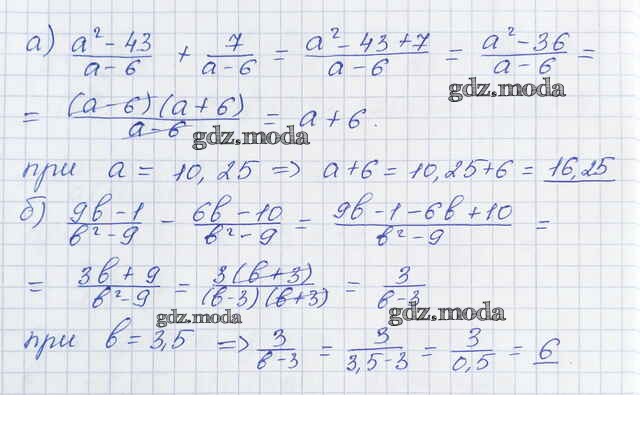 а) (a² - 43)/(a - 6) + 7/(a - 6) = (a² - 43 + 7)/(a - 6) = (a² - 36)/(a - 6) =
gdz.moda
= ((a - 6)(a + 6))/(a - 6) = a + 6.
gdz.moda
при a = 10,25 => a + 6 = 10,25 + 6 = 16,25
б) (9в - 1)/(в² - 9) - (6в - 10)/(в² - 9) = (9в - 1 - 6в + 10)/(в² - 9) =
= (3в + 9)/(в² - 9) = (3(в + 3))/((в - 3)(в + 3)) = 3/(в - 3)
gdz.moda gdz.moda
при в = 3,5 => 3/(в - 3) = 3/(3,5 - 3) = 3/0,5 = 6